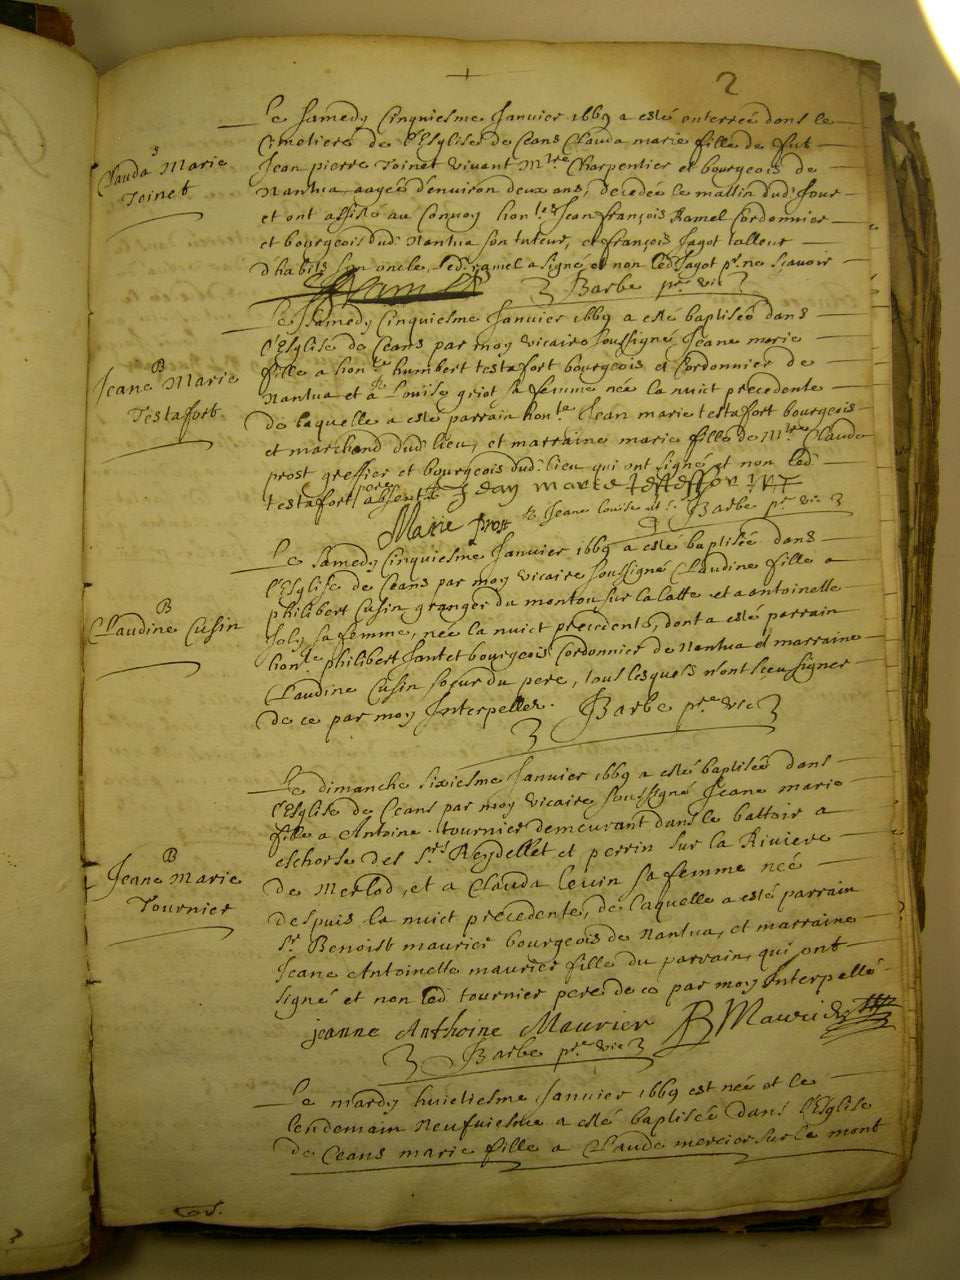 2
Le Samedy Cinquiesme Janvier 1669 a esté enterrée dans le
Cimetiere de l'Esglise de Ceans Clauda marie fille de fut
Jean pierre Toinet vivant Mtre Charpentier et bourgeois de
Nantua aagée d'environ deux ans, decedée le mattin dud. Jour
et ont assisté au Convoy hontes Jean françois Ramel Cordonnier
et bourgeois dud. Nantua son tuteur, et françois Jagot talleur
d'habits son oncle, led. ramel a signé et non led Jagot pr. ne scavoir
S
Clauda Marie
Toinet
Ramel Barbe pr. vic
Le Samedy Cinquiesme Janvier 1669 a esté baptisée dans
l'Esglise de Ceans par moy vicaire soussigné Jeane marie
fille a honte humbert testafort bourgeois et Cordonnier de
Nantua et a Louise griot sa femme née la nuict precedente
B
Jeane Marie
Testafort
de laquelle a esté parrain honte Jean marie testafort bourgeois
et marchand dud. lieu, et marraine marie fille de Mtre Claude
prost greffier et bourgeois dud. lieu qui ont signé et non led
testafort pere absent Jean marie testefort
Marie prost Barbe pr. vic
Le Samedy Cinquiesme Janvier 1669 a esté baptisée dans
l'Esglise de Ceans par moy vicaire soussigné Claudine fille a
philibert Cusin granger du montou sur la Latte et a antoinette
Joly sa femme, née la nuict precedente, dont a esté parrain
honte philibert Jantet bourgeois Cordonnier de Nantua et marraine
Claudine Cusin soeur du pere, tous lesquels n'ont sceu signer
de ce par moy Interpellez. Barbe pr.e vic
B
Claudine Cusin
Le dimanche sixiesme Janvier 1669 a esté baptisée dans
l'Esglise de Ceans par moy vicaire soussigné Jeane marie
fille a Antoine tournier demeurant dans le battoir a
eschorse des Srs Reydellet et perrin sur la Riviere
de Merlod, et a Clauda levin sa femme née
despuis la nuict precedente, de laquelle a esté parrain
Sr. Benoist maurier bourgeois de Nantua, et marraine
Jeane Antoinette maurier fille du parrain, qui ont
signé et non led tournier pere de ce par moy Interpellé
B
Jeane Marie
Tournier
jeanne Anthoine Maurier B Maurier
Barbe pr.e vic
Le mardy huictiesme Janvier 1669 est née et le
lendemain neufviesme a esté baptisée dans l'Esglise
de Ceans marie fille a Claude mercier sur le mont